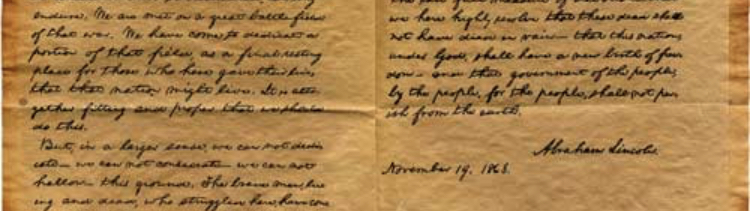 endure. We are met on a great battle field
of that war. We have come to dedicate a
portion of that field, as a final resting
place for those who here gave their lives
that that nation might live. It is alto-
gether fitting and proper that we should
do this.
But, in a larger sense, we can not dedi-
cate— we can not consecrate— we can not
hallow— this ground. The brave men, liv-
ing and dead, who struggled here, have con-
we here highly resolve that these dead shall
not have died in vain— that this nation,
under God, shall have a new birth of free-
dom— and that government of the people,
by the people, for the people, shall not per-
ish from the earth.
Abraham Lincoln.
November 19, 1863.